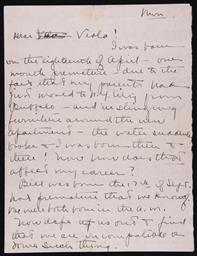 Mon
Dear Viola!
I was born
on the eighteenth of April - one
month premature - due to the
fact that my parents had
just moved to N.Y. City from
Buffalo - and in slinging
furniture around the new
apartment - the water suddenly
broke & I was born then &
there! Now how does that
affect my career?
Bill was born the 17th of Sept.
not premature that we know
we were both born in the a.m.
Now dope us out & find
that we are incompatible or
some such thing.